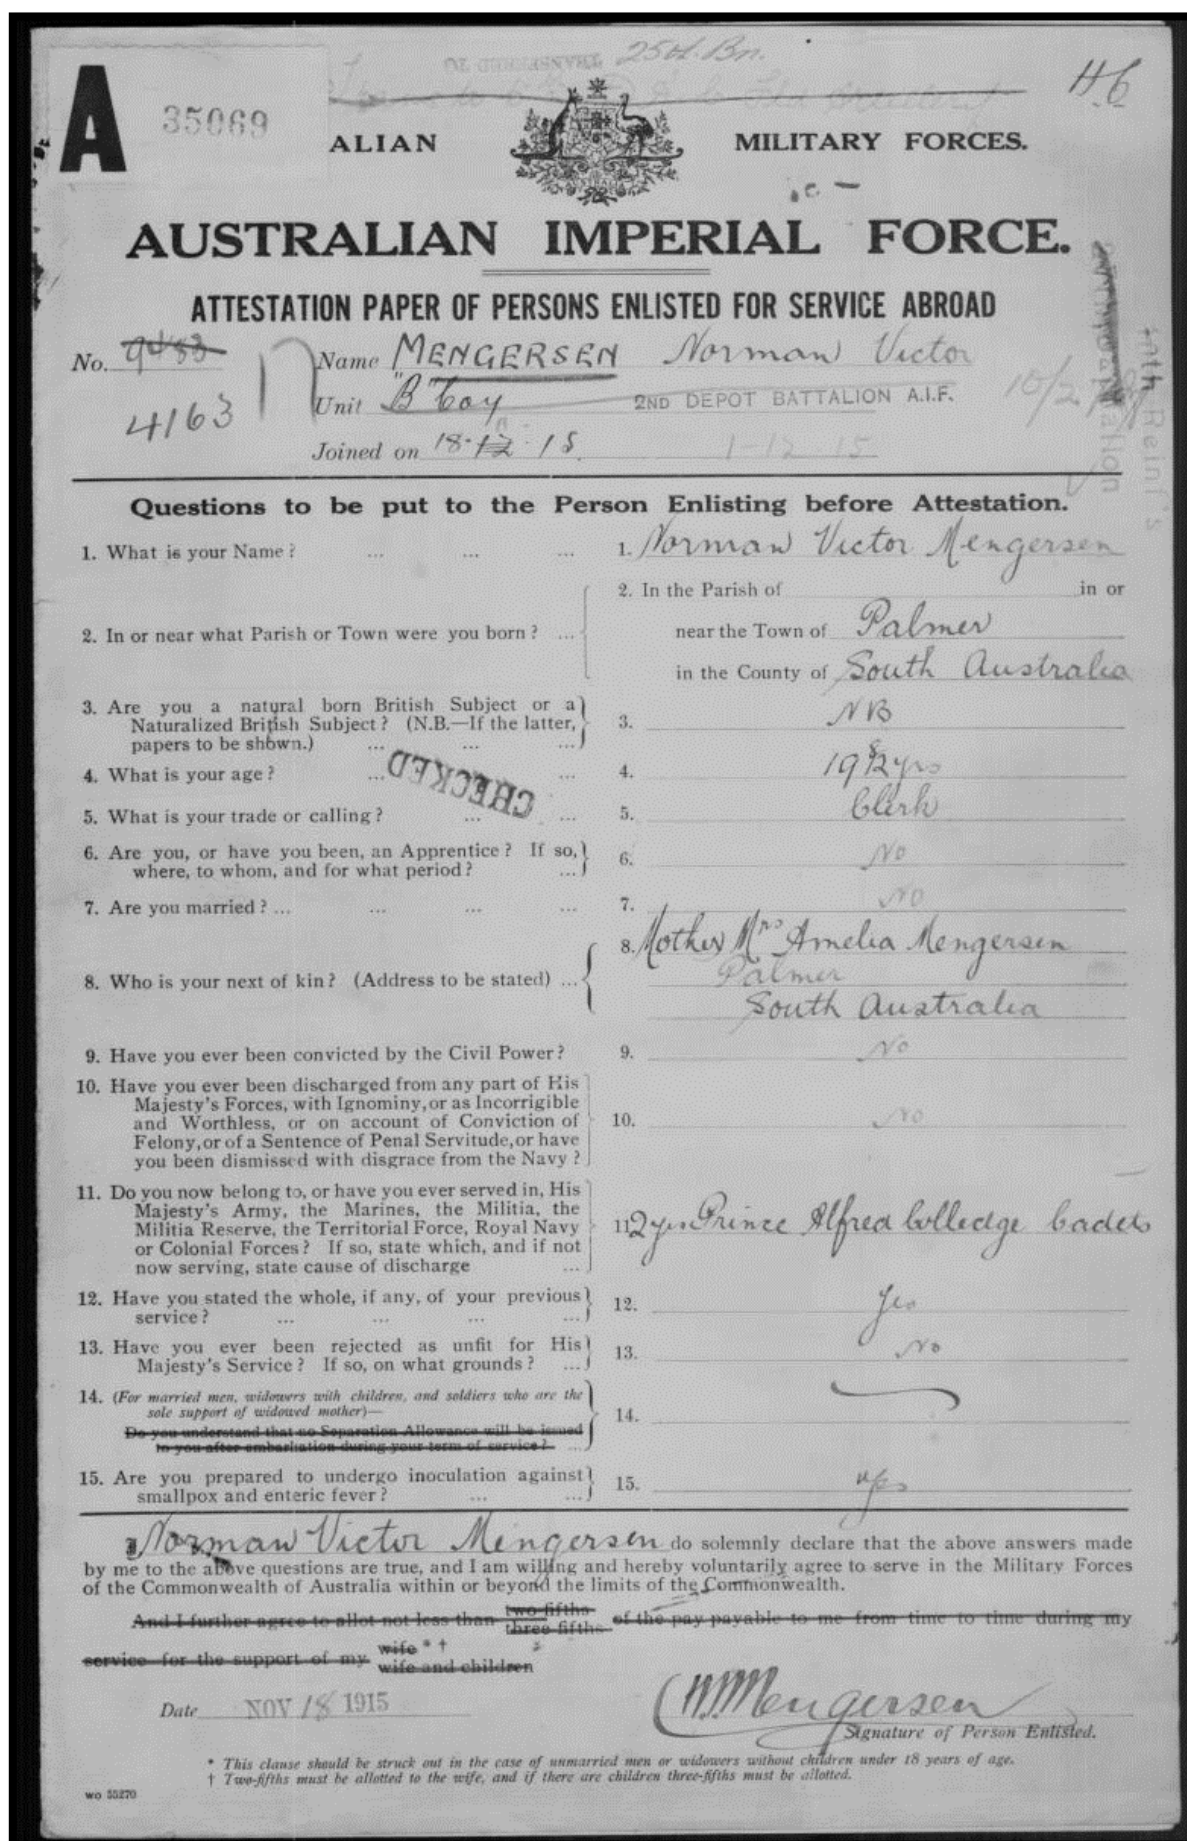 25th. Bn.
TRANSFERRED TO
A 35069
46
ALIAN MILITARY FORCES.
AUSTRALIAN IMPERIAL FORCE.
ATTESTATION PAPER OF PERSONS ENLISTED FOR SERVICE ABROAD
No. 9433 Name MENGERSEN Norman Victor
4163 Unit "B" Coy 2ND DEPOT BATTALION A.I.F.
Joined on 18.12.15. 1-12 15
Questions to be put to the Person Enlisting before Attestation.
1. What is your Name? ... ... ... 1. Norman Victor Mengersen
2. In the Parish of in or
2. In or near what Parish or Town were you born? ... near the Town of Palmer
in the County of South Australia
3. Are you a natural born British Subject or a
Naturalized British Subject? (N.B.—If the latter, 3. NB
papers to be shown.) ... ... ...
4. What is your age? ... ... 4. 19 8/12 yrs
CHECKED
5. What is your trade or calling? ... ... 5. Clerk
6. Are you, or have you been, an Apprentice? If so, 6. No
where, to whom, and for what period? ...
7. Are you married? ... ... ... ... 7. No
8. Mother Mrs Amelia Mengersen
8. Who is your next of kin? (Address to be stated) ... Palmer
South Australia
9. Have you ever been convicted by the Civil Power? 9. No
10. Have you ever been discharged from any part of His
Majesty's Forces, with Ignominy, or as Incorrigible
and Worthless, or on account of Conviction of 10. No
Felony, or of a Sentence of Penal Servitude, or have
you been dismissed with disgrace from the Navy?
11. Do you now belong to, or have you ever served in, His
Majesty's Army, the Marines, the Militia, the
Militia Reserve, the Territorial Force, Royal Navy 11. 2 yrs Prince Alfred Colledge Cadets
or Colonial Forces? If so, state which, and if not
now serving, state cause of discharge ...
12. Have you stated the whole, if any, of your previous 12. Yes
service? ... ... ... ...
13. Have you ever been rejected as unfit for His 13. No
Majesty's Service? If so, on what grounds? ...
14. (For married men, widowers with children, and soldiers who are the
sole support of widowed mother)— 14.
Do you understand that no Separation Allowance will be issued
to you after embarkation during your term of service? ...
15. Are you prepared to undergo inoculation against 15. yes
smallpox and enteric fever? ... ...
I Norman Victor Mengersen do solemnly declare that the above answers made
by me to the above questions are true, and I am willing and hereby voluntarily agree to serve in the Military Forces
of the Commonwealth of Australia within or beyond the limits of the Commonwealth.
And I further agree to allot not less than two-fifths three-fifths of the pay payable to me from time to time during my
service for the support of my wife * † wife and children
Date NOV 18 1915 N.V. Mengersen
Signature of Person Enlisted.
* This clause should be struck out in the case of unmarried men or widowers without children under 18 years of age.
† Two-fifths must be allotted to the wife, and if there are children three-fifths must be allotted.
WO 55270